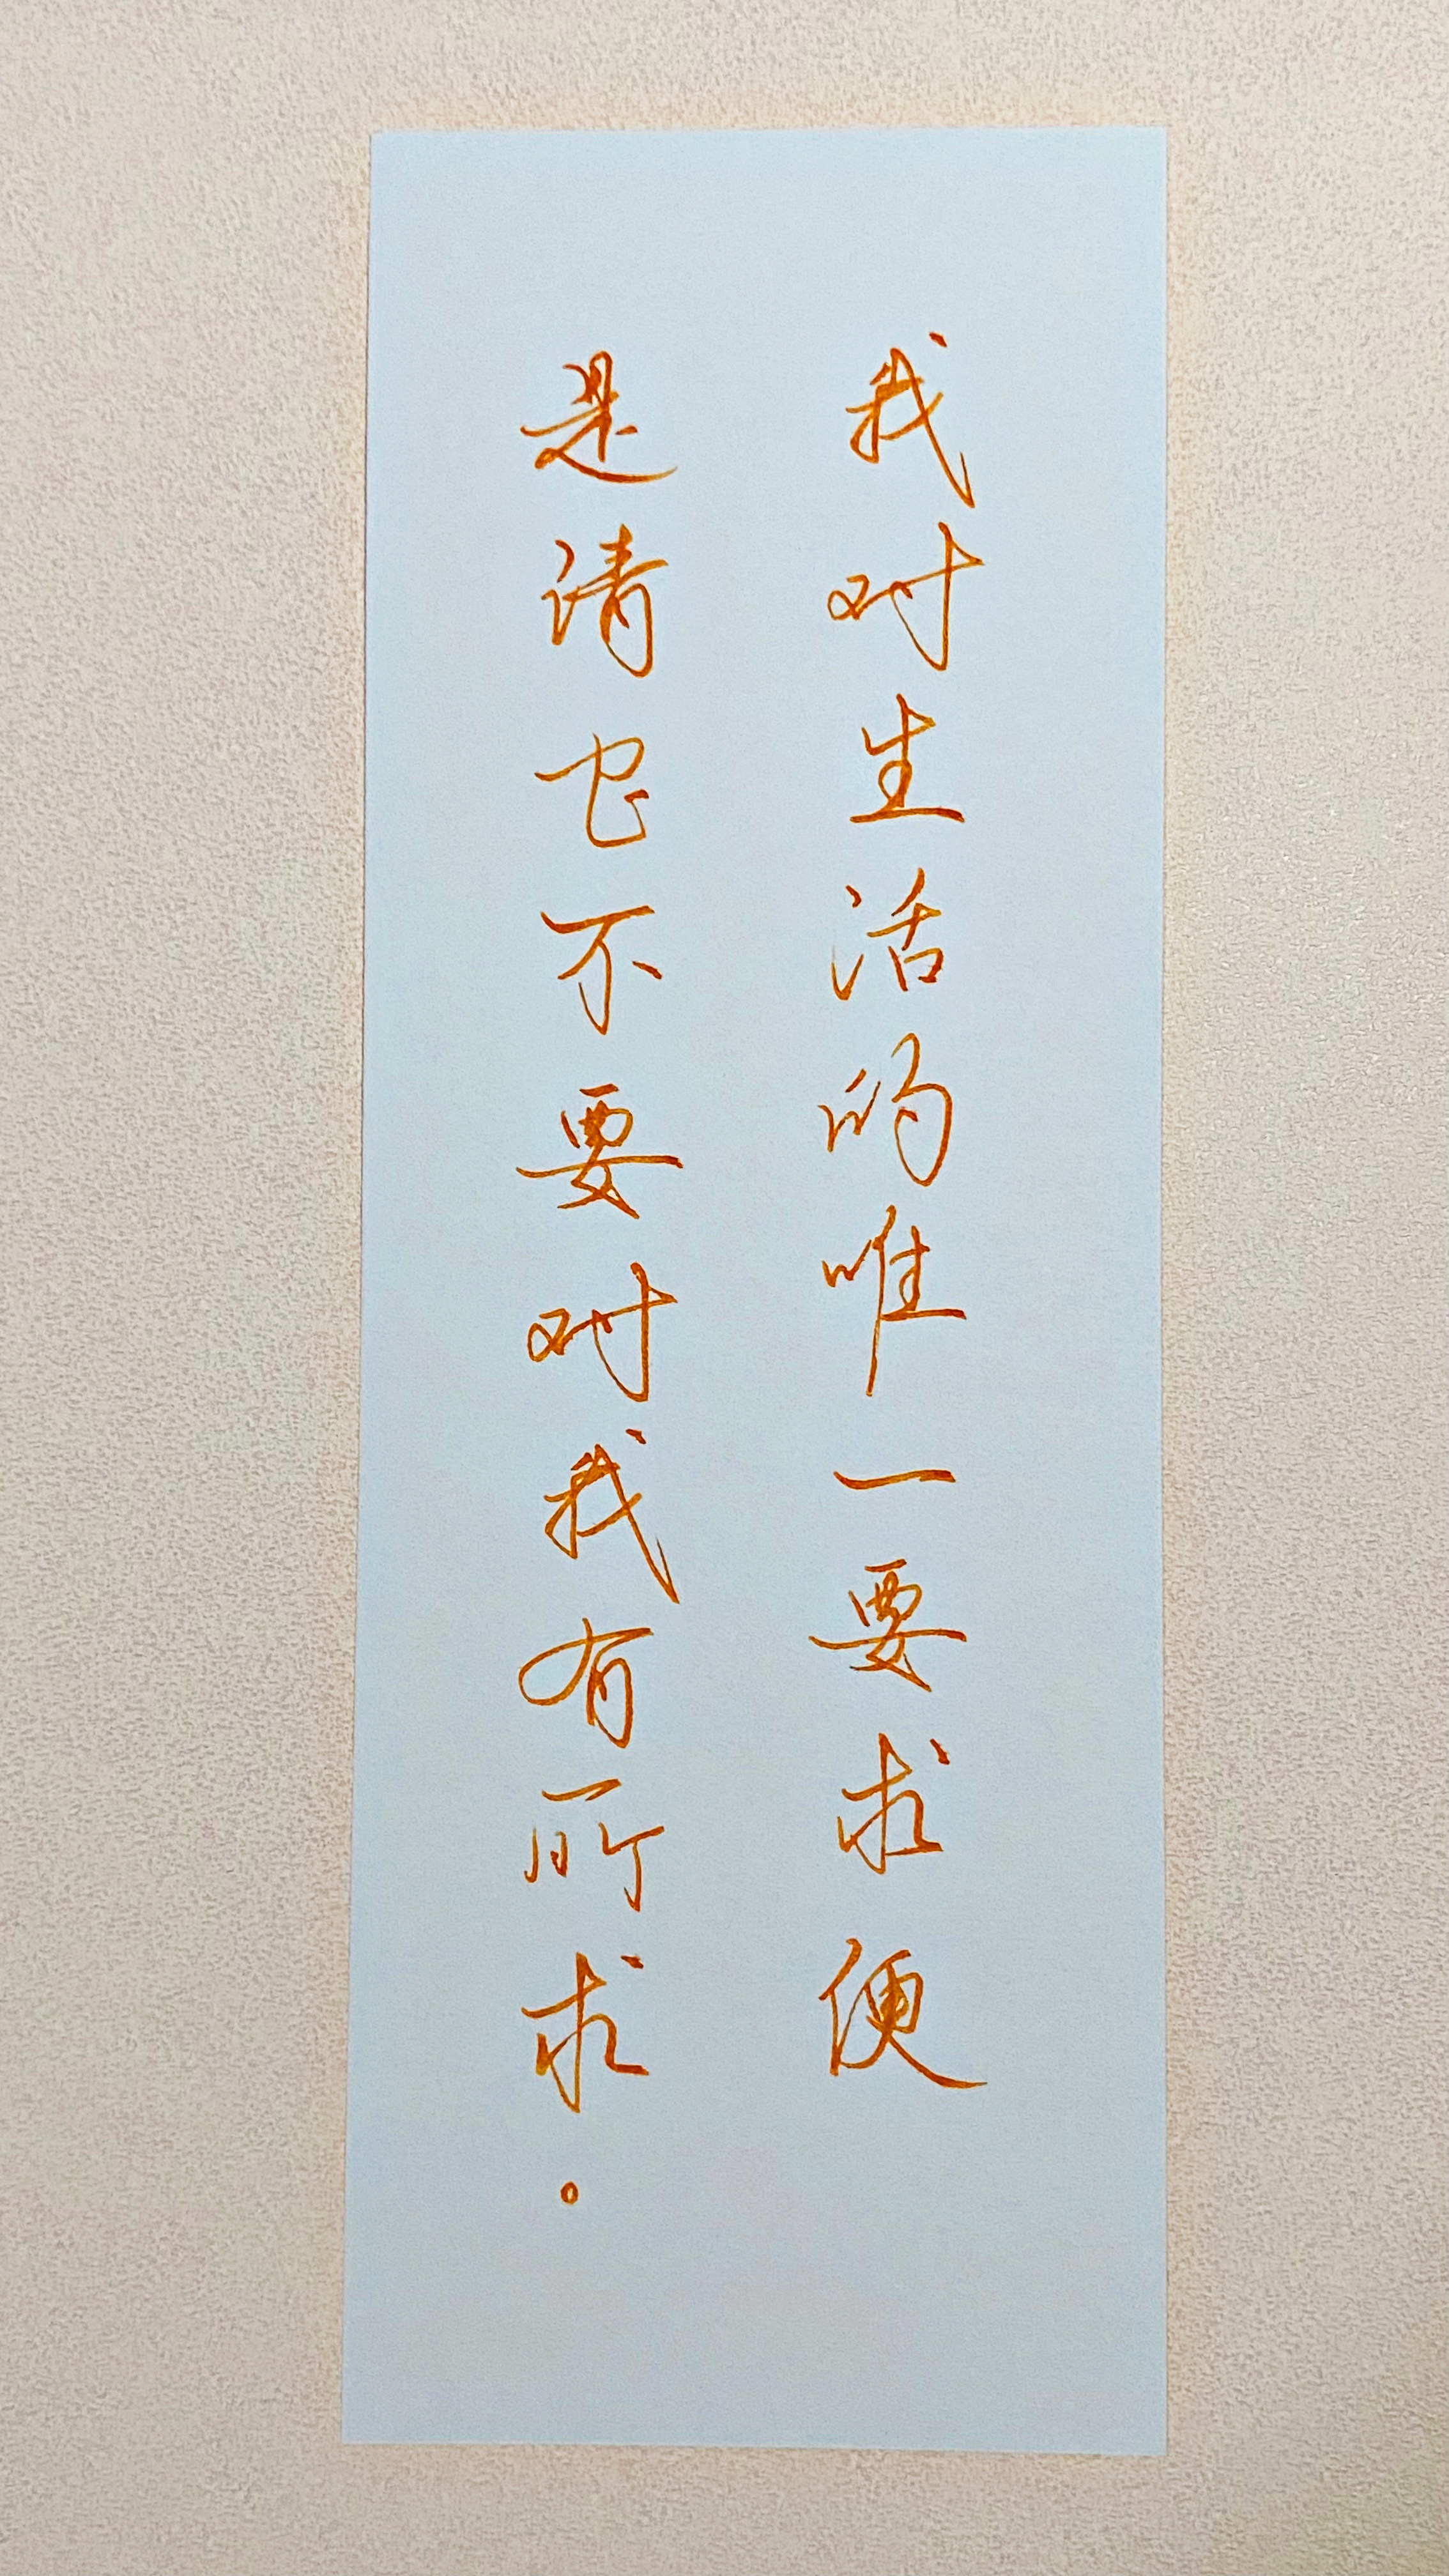 我对生活的唯一要求便
是请它不要对我有所求。